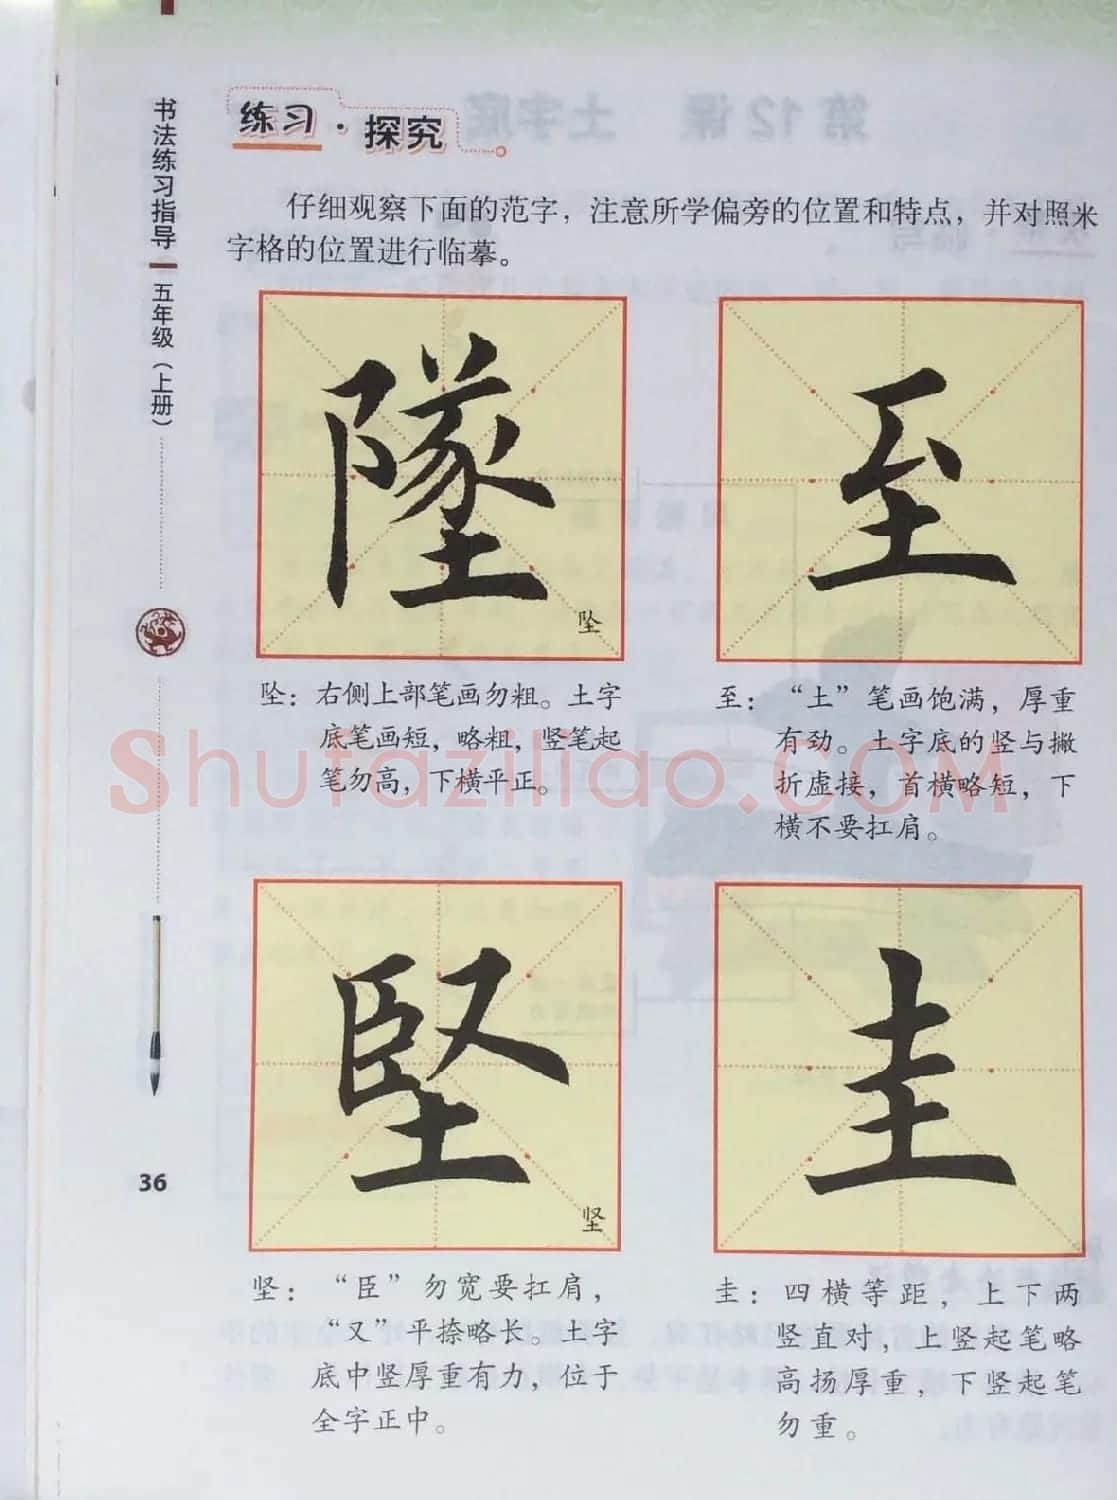 书法练习指导
五年级（上册）
36
练习·探究
仔细观察下面的范字，注意所学偏旁的位置和特点，并对照米
字格的位置进行临摹。
墜
坠
至
坠：右侧上部笔画勿粗。土字
底笔画短，略粗，竖笔起
笔勿高，下横平正。
至：“土”笔画饱满，厚重
有劲。土字底的竖与撇
折虚接，首横略短，下
横不要扛肩。
Shufaziliao.com
堅
坚
圭
坚：“臣”勿宽要扛肩，
“又”平捺略长。土字
底中竖厚重有力，位于
全字正中。
圭：四横等距，上下两
竖直对，上竖起笔略
高扬厚重，下竖起笔
勿重。
第12课 土字底